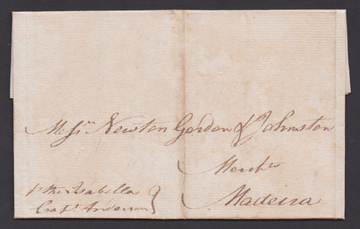 Messrs Newton Gordon & Johnston
Merchts
Madeira
pr the Isabella
Capt Anderson